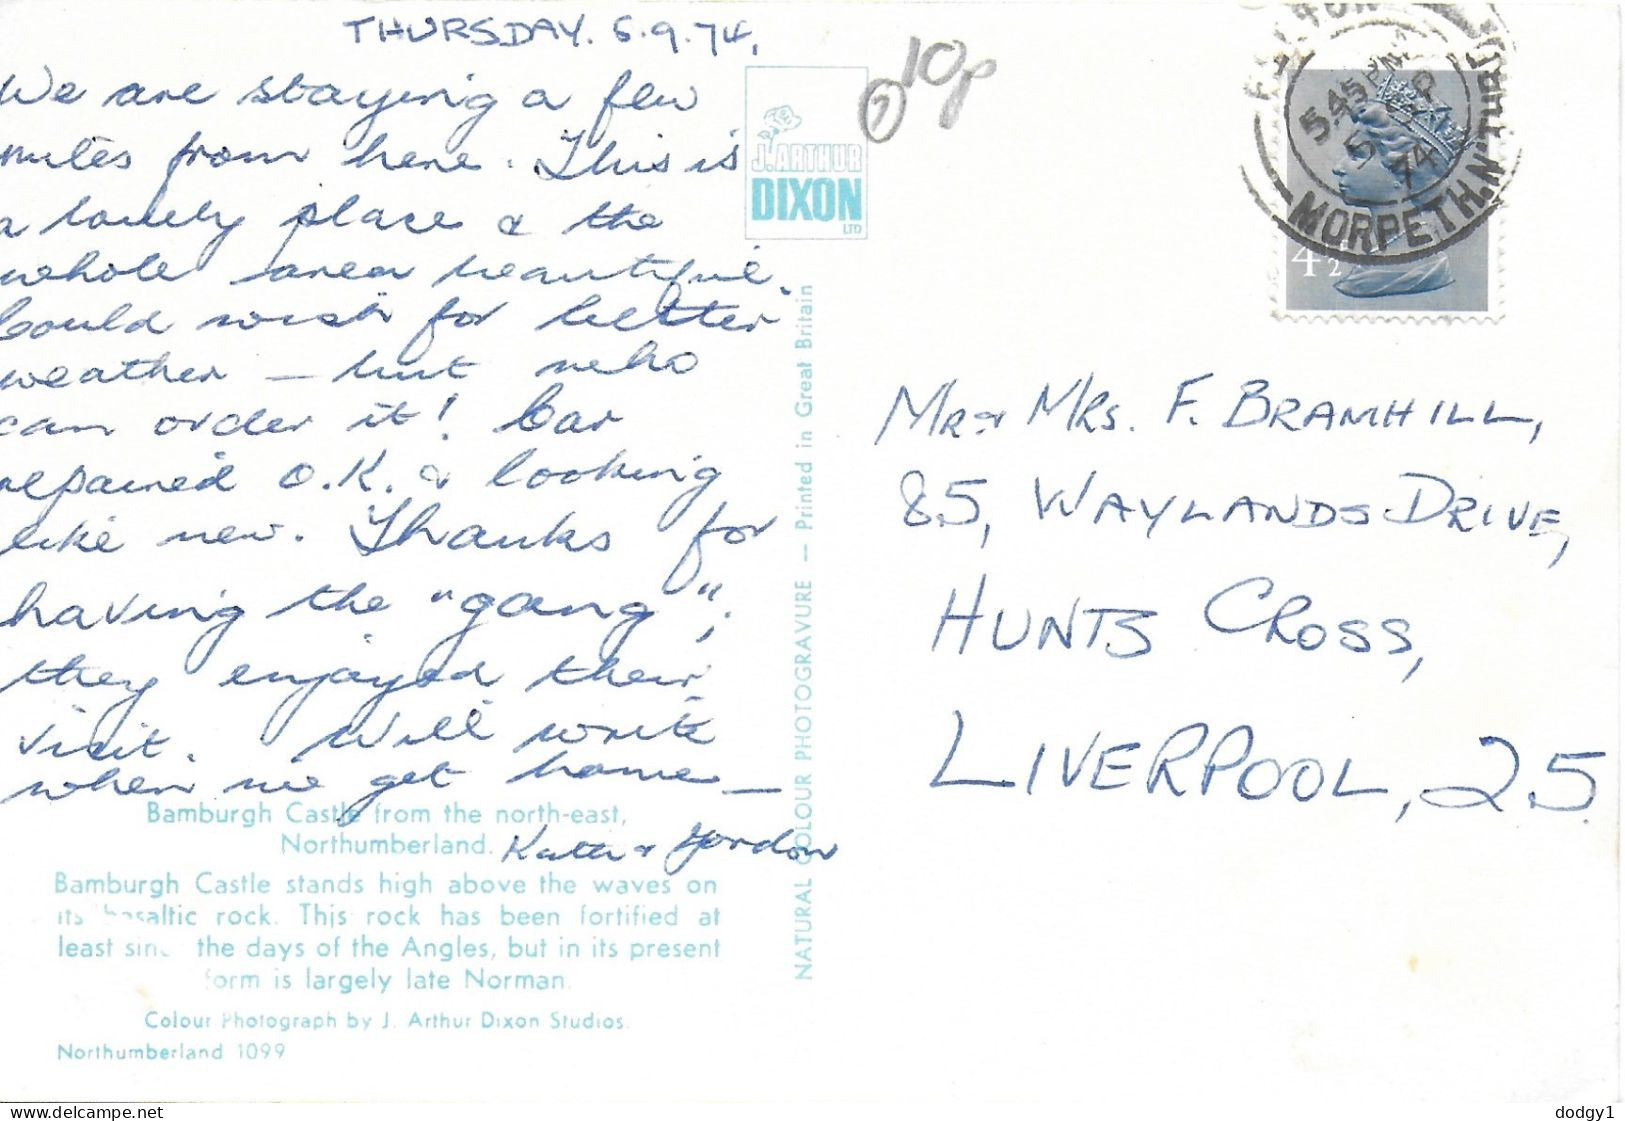 THURSDAY. 5.9.74.
We are staying a few
miles from here. This is
a lovely place & the
whole area beautiful.
Could wish for better
weather — but who
can order it! Car
repaired O.K. & looking
like new. Thanks for
having the "gang",
they enjoyed their
visit. Will write
when we get home —
Gordon
Bamburgh Castle from the north-east,
Northumberland.
Bamburgh Castle stands high above the waves on
its basaltic rock. This rock has been fortified at
least since the days of the Angles, but in its present
form is largely late Norman.
Colour Photograph by J. Arthur Dixon Studios.
Northumberland 1099
J. ARTHUR
DIXON
LTD
NATURAL COLOUR PHOTOGRAVURE — Printed in Great Britain
7 10p
5.45 PM
5
74
MORPETH. N'THBLD
4½
Mr & Mrs. F. BRAMHILL,
85, WAYLANDS DRIVE,
HUNTS CROSS,
LIVERPOOL, 25.
dodgy1
www.delcampe.net